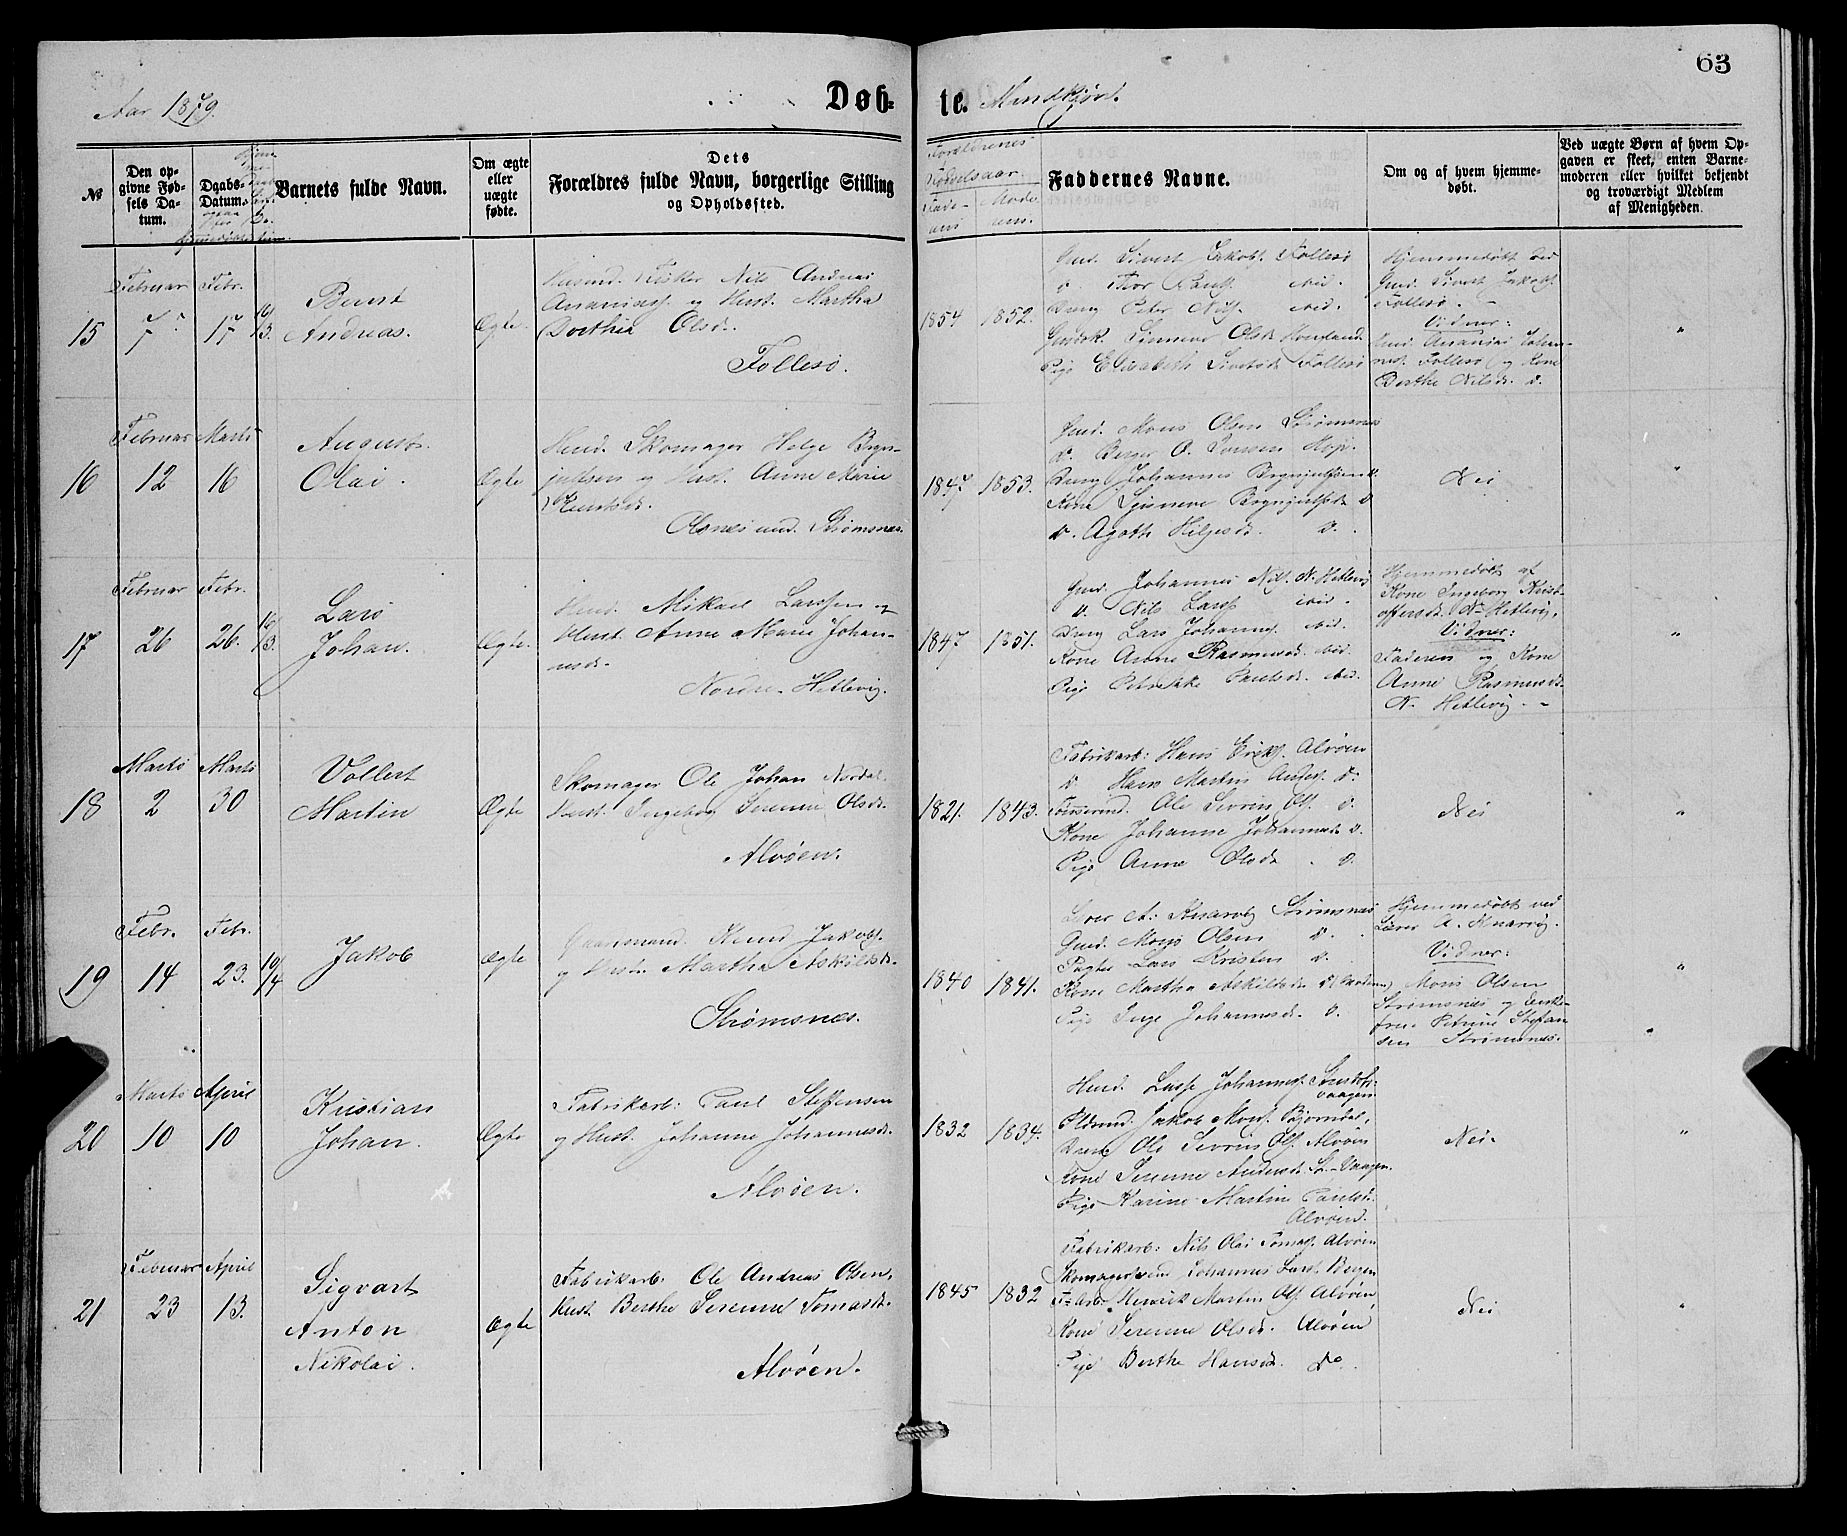 63
Aar 1879.
Døb-
te. Mandkjøn.
№
Den op-
givne Fød-
sels Da-
tum.
Daabs-
Datum
Barnets fulde Navn.
Om ægte
eller
uægte
fødte.
Dets
Forældres fulde Navn, borgerlige Stilling
og Opholdssted.
Forældrenes
Fødselsaar.
Fade-
rens
Mode
rens.
Faddernes Navne.
Om og af hvem hjemme-
døbt.
Ved uægte Børn af hvem Op-
gaven er skeet, enten Barne-
moderen eller hvilket bekjendt
og troværdigt Medlem
af Menigheden.
15
Februar
7
Febr.
17
16/3.
Bernt
Andreas.
Ægte.
Husmd. Fisker Nils Andreas
Ananiasf. og Hust. Martha
Dorthea Olsd.
Follesø.
1854
1852.
Gmd. Sivert Jakobs. Follesø
d. Thor Paulf. ibid.
Dreng Peter Nilf. ibid.
Olsd.
Pige Elisabeth Sivertsd. Follesø
Hjemmedøbt ved
Gmd. Sivert Jakobf.
Follesø.
Vidner:
Gmd. Ananias Johan-
nesf. Follesø og Kone
Berthe Nilsd. d.
"
16
Februar
12
Marts
16
August
Olai.
Ægte
Husmd. Skomager Helge Bryn-
julfsen og Hust. Anne Marie
Knutsd.
Olsnes und. Strømsnes.
1847
1853.
Gmd. Mons Olsen Strømsnes
d. Berger O. Hop.
Dreng Johannes Brynjulfsen d.
Kone Brynjulfsd. d.
d. Agothe Helgesd. d.
Nei
"
17
Februar
26
Febr.
26.
16/3.
Lars
Johan.
Ægte.
Husmd. Mikael Larssen og
Hust. Anne Marie Johan-
nesd.
Nordre Hetlevig.
1847
1851.
Gmd. Johannes Nilf. N. Hetlevig
d. Nils Larsf. ibid.
Dreng Lars Johannesf. ibid.
Kone Anne Rasmusd. ibid.
Pige Petrikke Paulsd. ibid.
Hjemmedøbt af
Kone Ingeborg Krist-
offersd. N. Hetlevig.
Vidner:
Faderen og Kone
Anne Rasmusd.
N. Hetlevig.
"
18
Marts
2
Marts
30
Vollert
Martin
Ægte
Skomager Ole Johan Nordal.
Hust. Ingeborg Serenne Olsd.
Alvøen.
1821.
1843.
Fabrikarb: Hans Erikf. Alvøen
d. Hans Martin Andf. d.
Ole Severin Olf. d.
Kone Johanne Johannesd. d.
Pige Anne Olsd. d.
Nei
"
19
Febr.
14
Febr.
23.
10/4
Jakob
Ægte
Gaardmand. Knud Jakobf.
og Hust. Martha Askildsd.
Strømsnes.
1840
1841.
Lærer A. Knarvig Strømsnes
Gmd. Mons Olsen d.
Pagter Lars Kristens. d.
Kone Martha Askildsd. d (Moderen)
Pige Inge Johannesd. d.
Hjemmedøbt ved
Lærer A. Knarvig.
Vidner:
Mons Olsen
Strømsnes og Enke-
frue Petrine Stefan-
sen Strømsnes.
"
20
Marts
10
April
10
Kristian
Johan.
Ægte
Fabrikarb: Paul Steffensen
og Hust. Johanne Johannesd.
Alvøen.
1832
1834.
Husmd. Lasse Johannesf.
vaagen
Jakob Monsf. Bjørndal.
Dreng Ole Severin Olf. Alvøen
Kone Serenne Andersd. Vaagen.
Pige Karine Martine Paulsd.
Alvøen.
Nei.
"
21
Februar
23
April
13.
Sigvart
Anton
Nikolai.
Ægte
Fabrikarb. Ole Andreas Olsen.
Hust. Berthe Serenne Tomasd.
Alvøen.
1845
1832
Fabrikarb: Nils Olai Tomasf. Alvøen
Skomagersvend Johannes Larsf. Bergen
F-arb. Henrik Martin Olf. Alvøen
Kone Serenne Olsd. Alvøen
Pige Berthe Hansd. do.
Nei
"